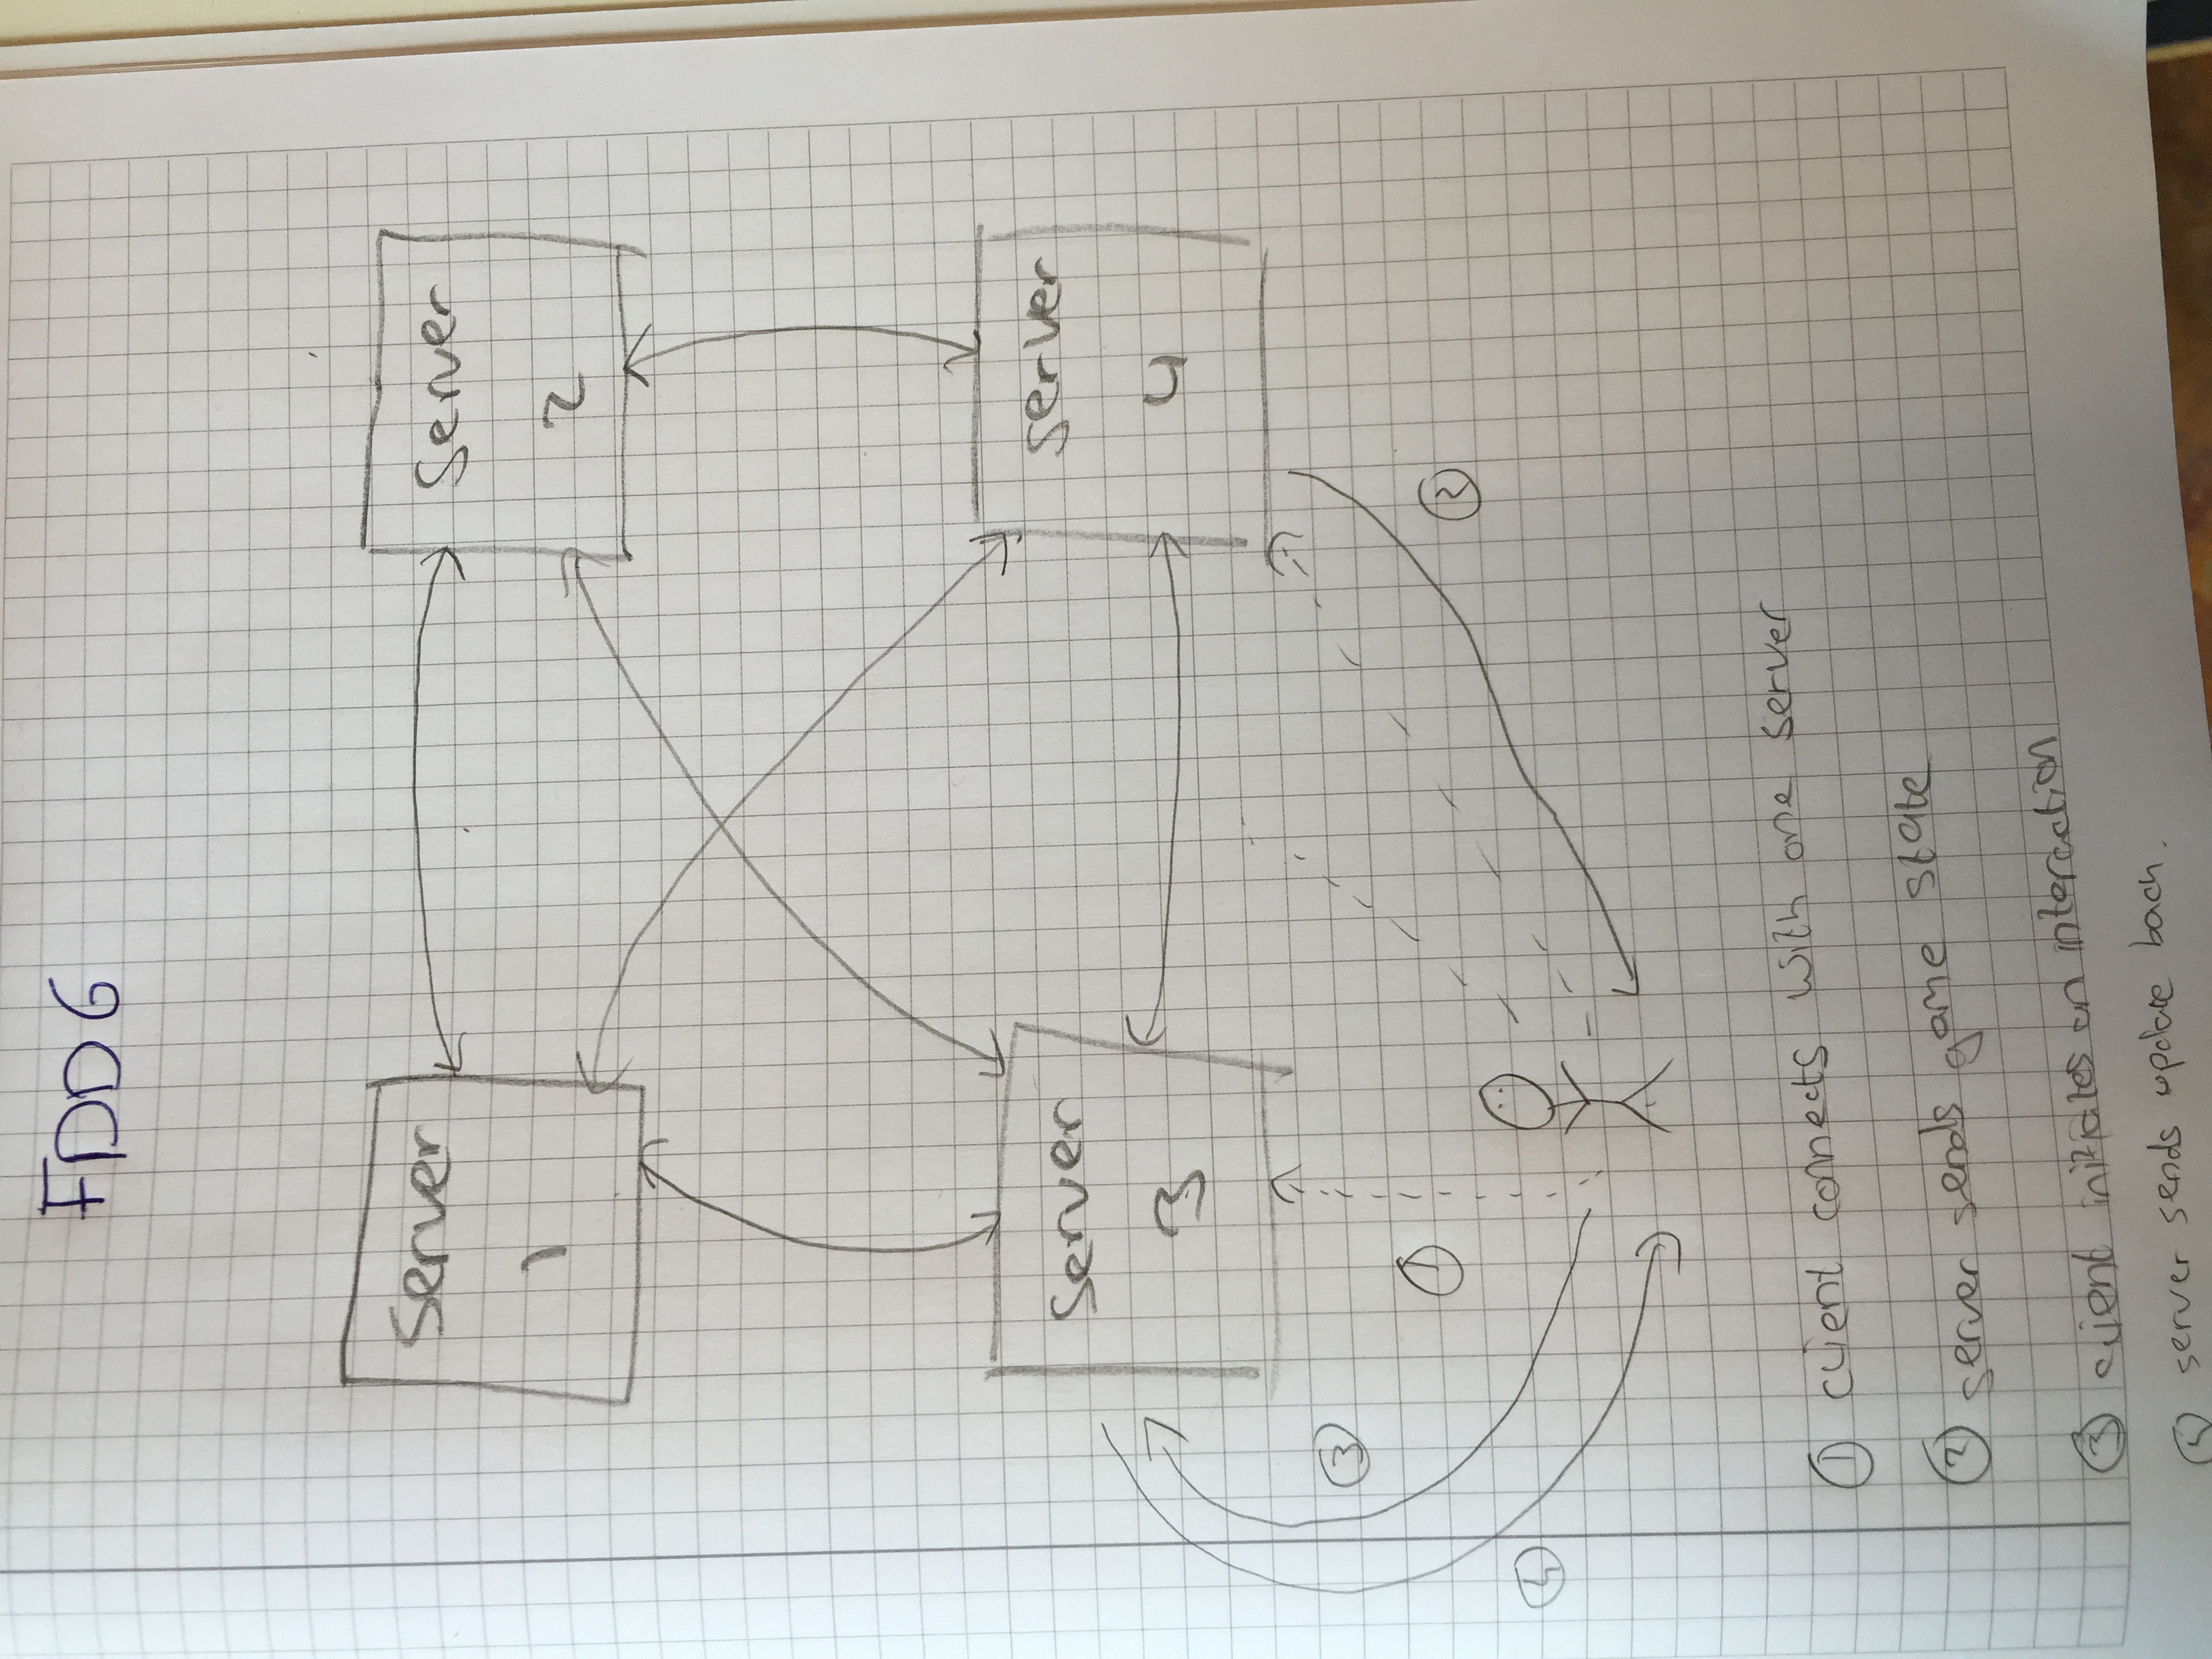 FDD6
Server
1
Server
2
Server
3
server
4
③
①
②
④
① client connects with one server
② server sends game state
③ client initiates an interaction
④ server sends update back.